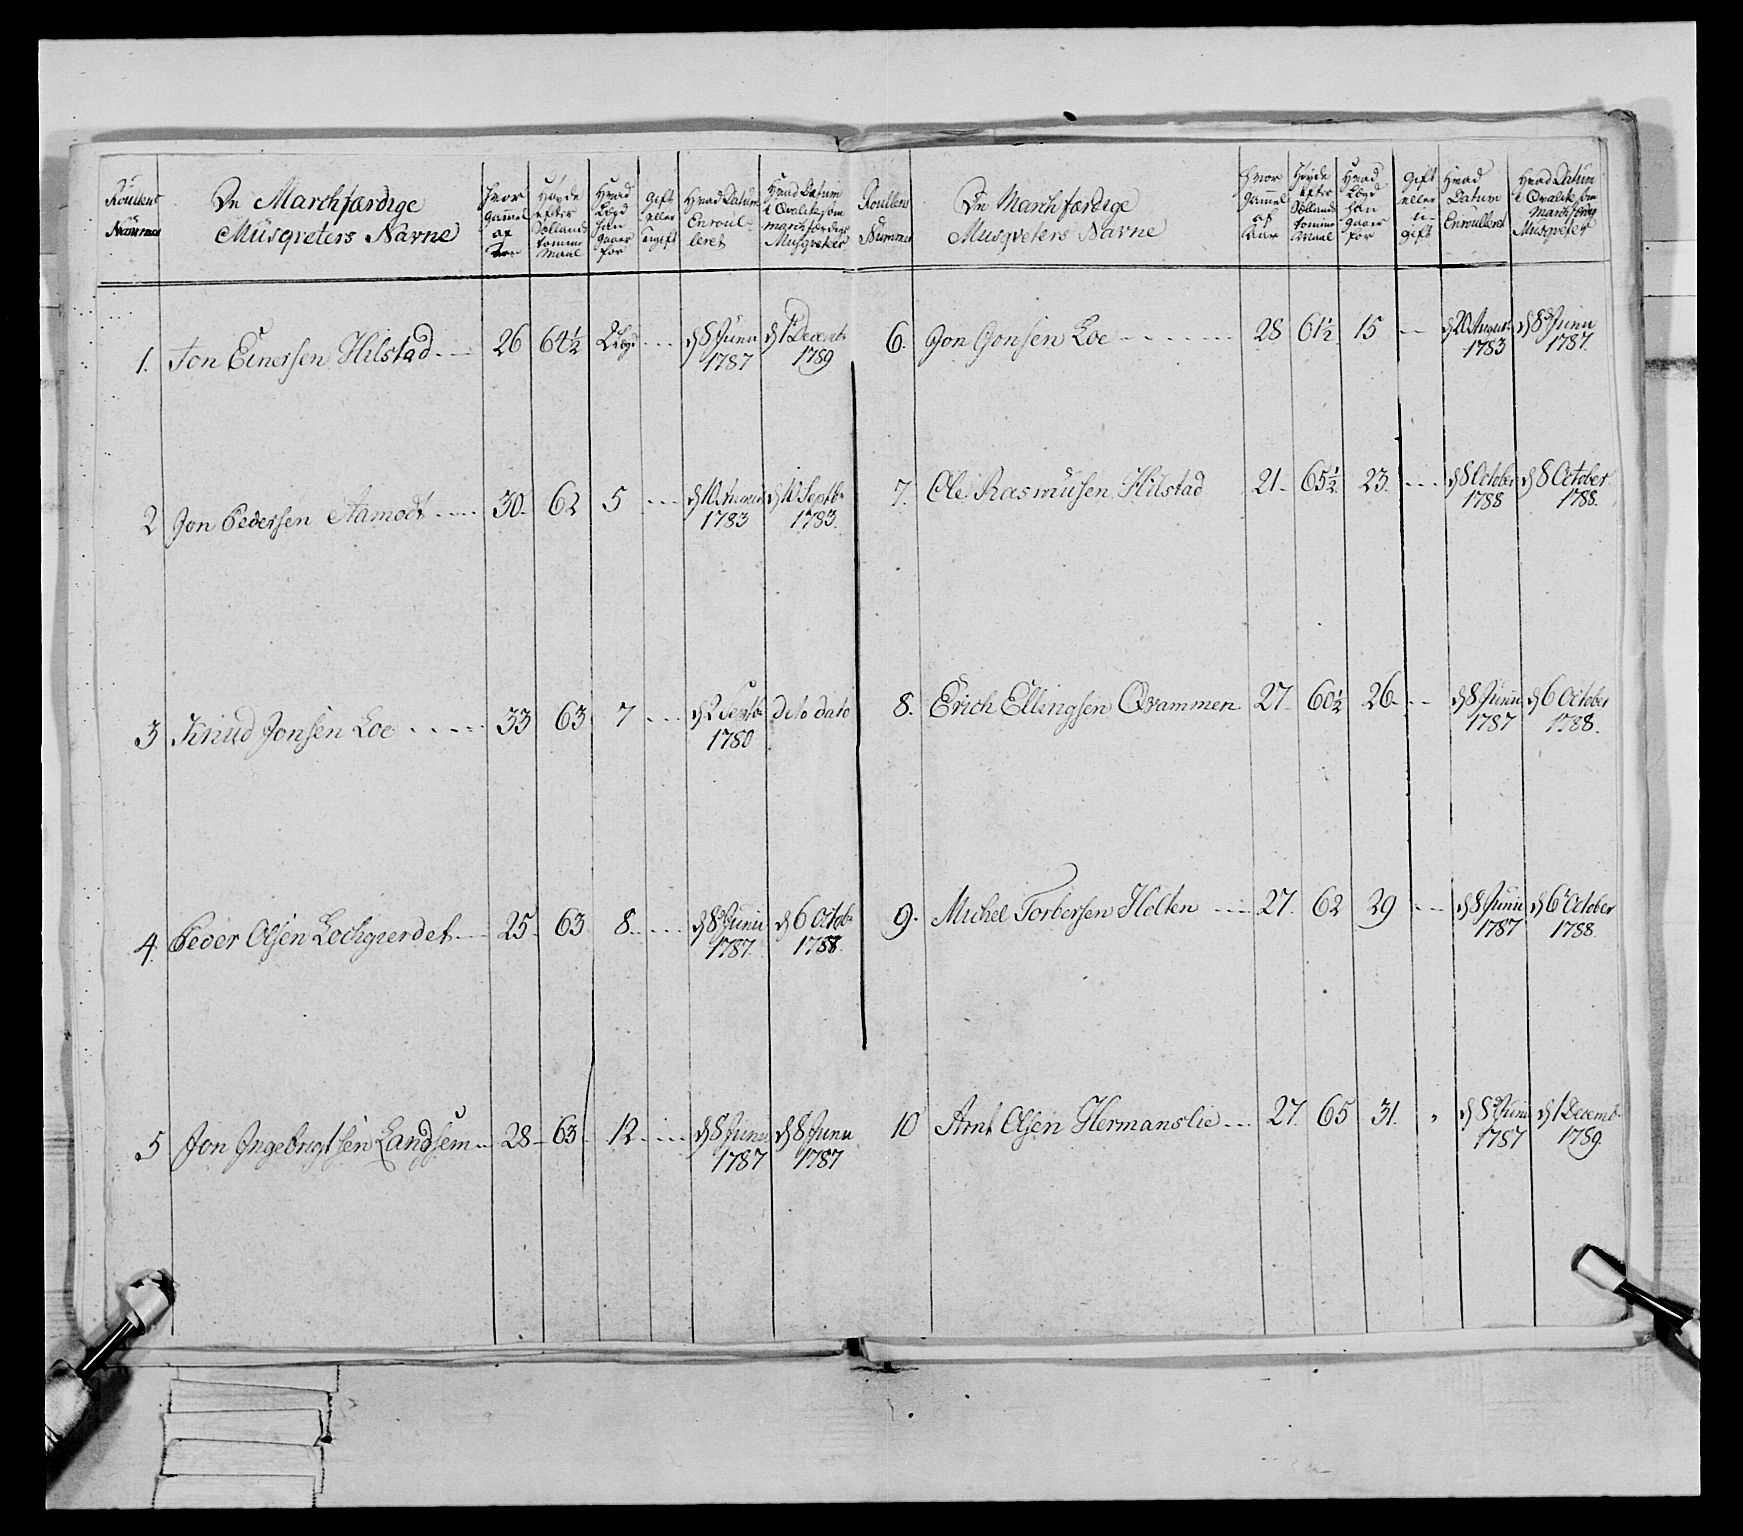 Roullens Nummer | De Marchfærdige Musqveters Navne | Hvor Gamel af Aar | Høyde efter Sollands tomme Maal | Hvad Lægd han gaaer for | Gift eller ugift | Hvad Datum Enroulleret | Hvad Datum i Qvalite som marchfærdige Musqveter
1. Jon Einersen Hilstad 26 64½ 2 Lægd d 8 Junii 1787 d 1 Decemb: 1789
2 Jon Pedersen Aamodt 30. 62 5 1783 d 10 Septb: 1783.
3 Knud Jonsen Loe 33 63 7 1780 dito dato
4. Peder Olsen Lochgierdet 25 63 8. d 8 Junii 1787. d 6 Octob: 1788.
5 Jon Ingebrigtsen Landsem 28 63 12 d 8 Junii 1787 d 8 Junii 1787
Roullens Nummer | De Marchfærdige Musqveters Navne | Hvor Gamel af Aar | Høyde efter Sollands tomme Maal | Hvad Lægd han gaaer for | Gift eller ugift | Hvad Datum Enroulleret | Hvad Datum i Qvalite som Marchfærdig Musqveter
6. Jon Jonsen Loe 28 61½ 15 d 20 August 1783 d 8 Junii 1787.
7. Ole Rasmusen Hilstad 21 65½ 23. d 8 October 1788 d 8 October 1788.
8. Erich Ellingsen Qvammen 27. 60½ 26 d 8 Junii 1787 d 6 October 1788.
9. Michel Torbersen Holten 27. 62 29 d 8 Junii 1787 d 6 October 1788.
10 Arnt Olsen Hermanslie 27. 65 31. d 8 Junii 1787 d 1 Decemb: 1789.